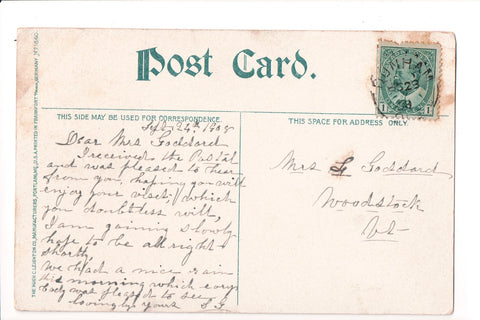 Post Card.
DUNHAM
23
1
1
THIS SIDE MAY BE USED FOR CORRESPONDENCE.
THIS SPACE FOR ADDRESS ONLY.
Sept. 24th 1908
Dear Mrs Goddard
I received the Postal
and was pleased to hear
from you, hoping you will
enjoy your visit, which
you doubtless will,
I am gaining slowly
hope to be all right
shortly,
We had a nice rain
this morning which every
body was pleased to see
lovingly yours
Mrs Goddard
Woodstock
Vt
THE HUGH C. LEIGHTON CO., MANUFACTURERS, PORTLAND, ME., U.S.A. PRINTED IN FRANKFORT GERMANY